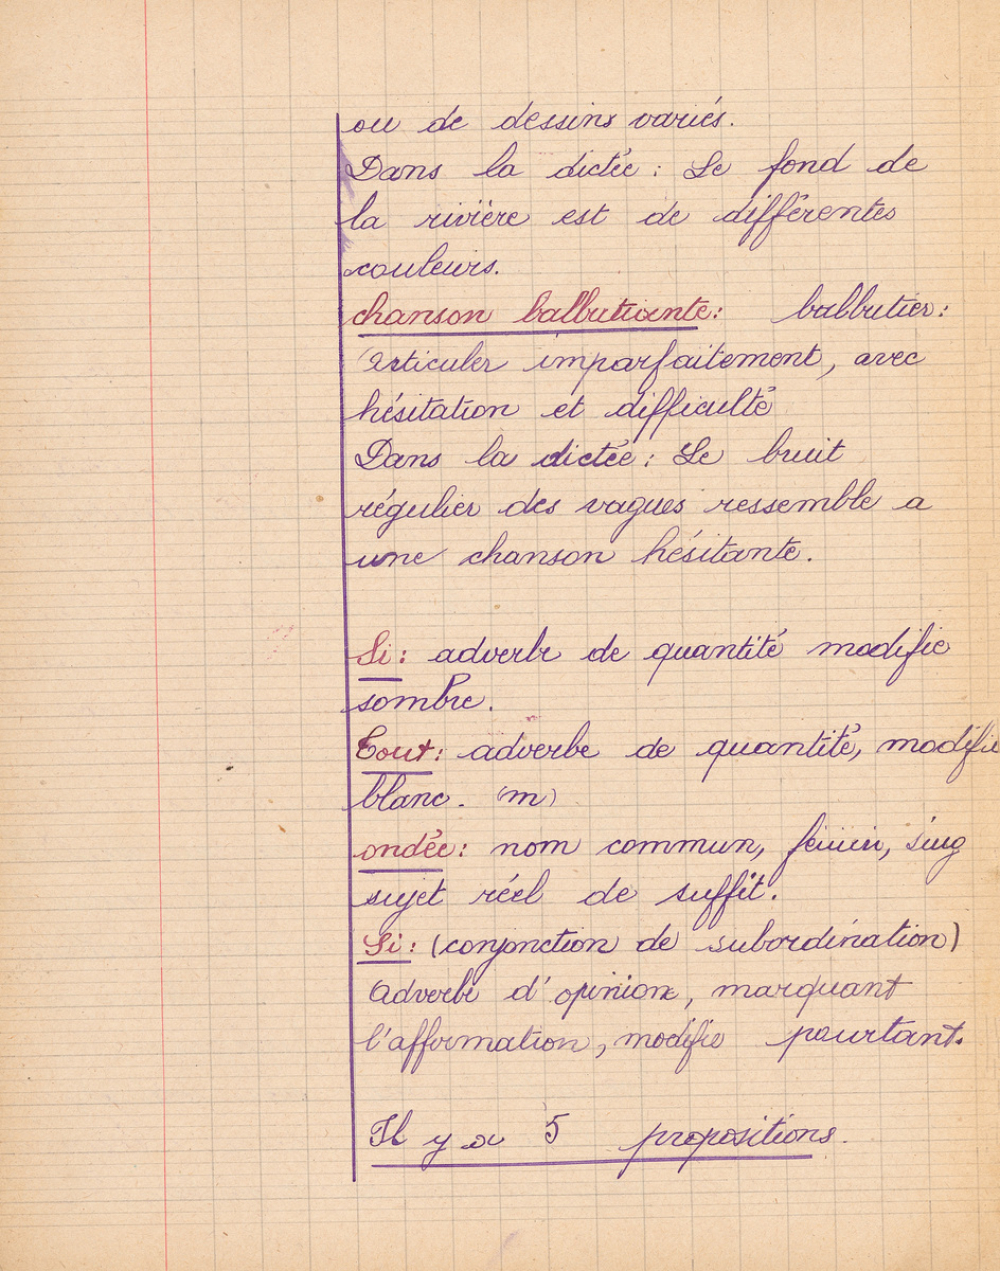 ou de dessins variés.
Dans la dictée : Le fond de
la rivière est de différentes
couleurs.
chanson balbutiante : balbutier :
Articuler imparfaitement, avec
hésitation et difficulté
Dans la dictée : Le bruit
régulier des vagues ressemble a
une chanson hésitante.
Si : adverbe de quantité modifie
sombre.
Tout : adverbe de quantité, modifie
blanc. (m)
ondée : nom commun, fémin, sing
sujet réel de suffit.
Si : (conjonction de subordination)
Adverbe d'opinion, marquant
l'affirmation, modifie pourtant.
Il y a 5 propositions.